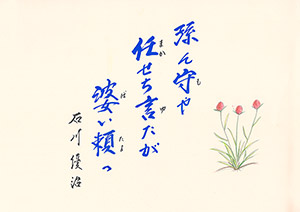 孫ん守や
任せち言だが
婆い頼っ
石川優治